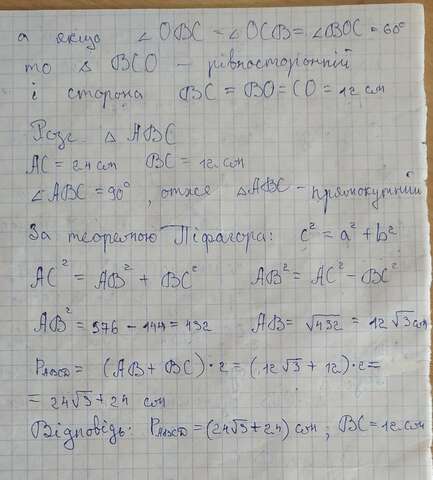 а якщо ∠OBC = ∠OCB = ∠BOC = 60°
то △ BCO – рівносторонній
і сторона BC = BO = CO = 12 см
Розг. △ ABC
AC = 24 см BC = 12 см
∠ABC = 90°, отже △ABC – прямокутний
За теоремою Піфагора: c² = a² + b²
AC² = AB² + BC² AB² = AC² – BC²
AB² = 576 – 144 = 432 AB = √432 = 12√3 см
P = (AB + BC) · 2 = (12√3 + 12) · 2 =
= 24√3 + 24 см
Відповідь: P = (24√3 + 24) см; BC = 12 см